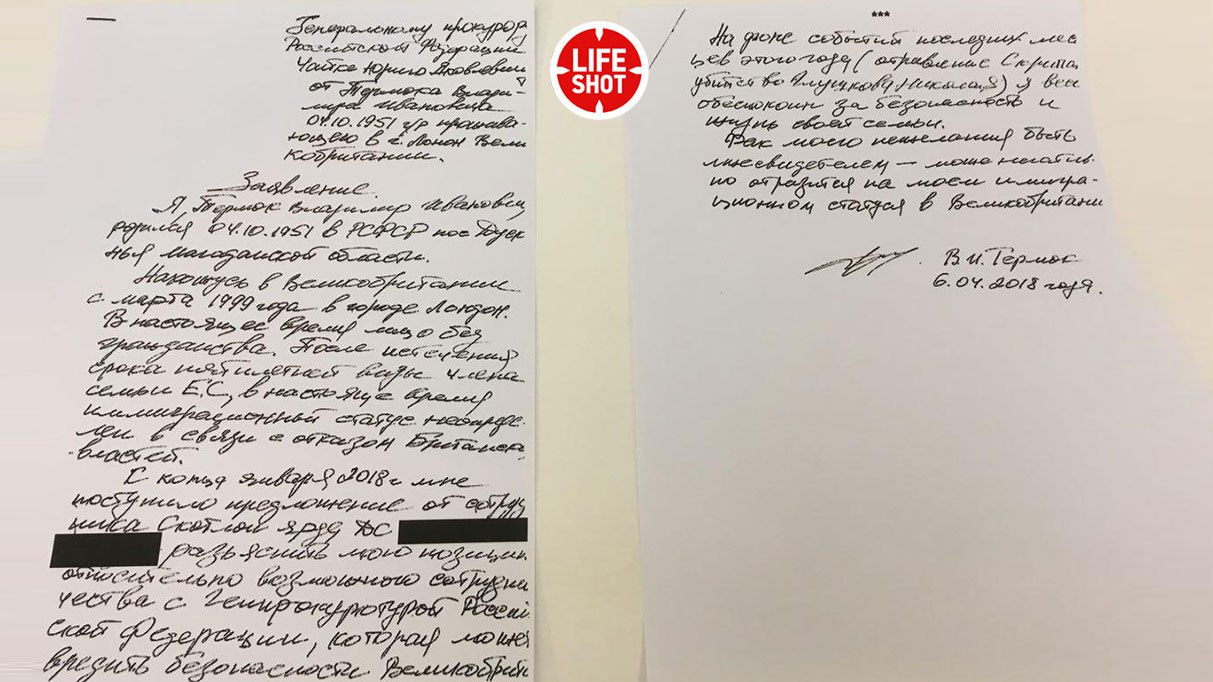 Генеральному прокурору
Российской Федерации
Чайке Юрию Яковлевичу
от Термока Влади-
мира Ивановича
04.10.1951 г/р прожива-
ющего в г. Лонон Вели
кобритании.
Заявление
Я, Термок Владимир Иванович,
родился 04.10.1951 в РСФСР пос
Магаданской области.
Нахожусь в Великобритании
с марта 1999 года в городе Лондон.
В настоящее время лицо без
гражданства. После истечения
срока пятилетней визы члена
семьи Е.С, в настояще время
иммиграционный статус неопреде-
лен в связи с отказом Британск
властей.
С конца января 2018 г мне
поступило предложение от сотруд
ника Скотлон ярда ДС
разъяснить мою позицию
относительно возможного сотрудни
чества с Генпрокуротурой Россий
ской Федерации, которая может
вредить безопасности Великобрита
LIFE
SHOT
***
На фоне событий последних меся
цев этого года (отравление Скрипа
убийство Глушкова Николая) я весь
обеспокоин за безопасность и
жизнь своей семьи.
Фак моего нежелания быть
лжесвидетелем — може негатив-
но отразится на моем имигра-
ционном статусе в Великобритани
В.И. Термок
6.04.2018 года.